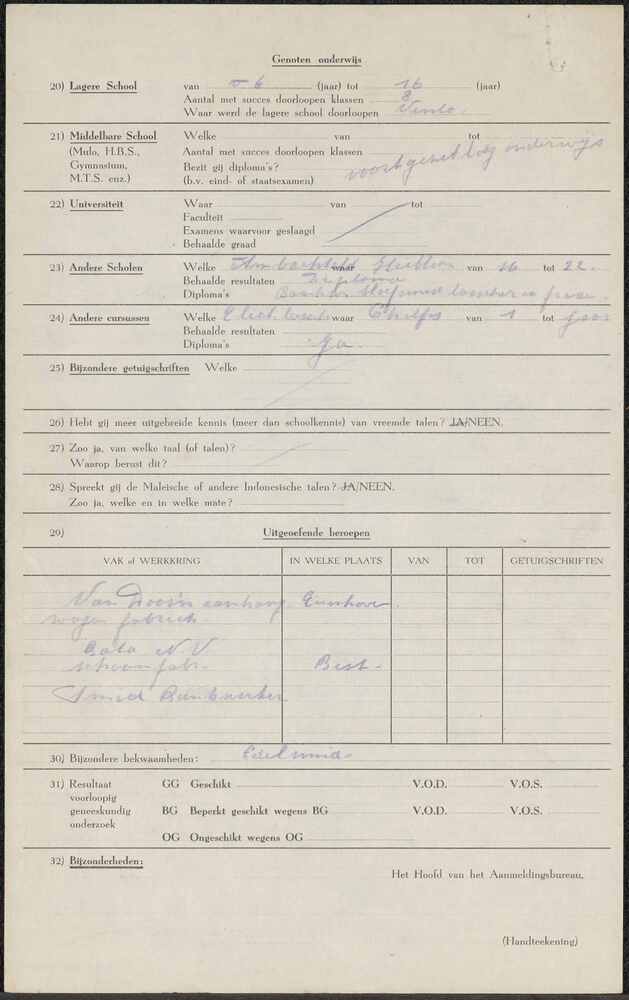 Genoten onderwijs
20) Lagere School van 6 (jaar) tot 16 (jaar)
Aantal met succes doorloopen klassen 8
Waar werd de lagere school doorloopen Venlo.
21) Middelbare School Welke van tot
(Mulo, H.B.S., Aantal met succes doorloopen klassen
Gymnasium, Bezit gij diploma's? voortgezet onderwijs
M.T.S. enz.) (b.v. eind- of staatsexamen)
22) Universiteit Waar van tot
Faculteit
Examens waarvoor geslaagd
Behaalde graad
23) Andere Scholen Welke waar van 16 tot 22.
Behaalde resultaten Diploma
Diploma's
24) Andere cursussen Welke waar van 1 tot jaar
Behaalde resultaten
Diploma's Ja.
25) Bijzondere getuigschriften Welke
26) Hebt gij meer uitgebreide kennis (meer dan schoolkennis) van vreemde talen? JA/NEEN.
27) Zoo ja, van welke taal (of talen)?
Waarop berust dit?
28) Spreekt gij de Maleische of andere Indonesische talen? JA/NEEN.
Zoo ja, welke en in welke mate?
29) Uitgeoefende beroepen
VAK of WERKKRING IN WELKE PLAATS VAN TOT GETUIGSCHRIFTEN
Van Doorn aanhang Einhoven
wagen fabriek
Bata N.V.
schoen fabr. Best.
Smid Bankwerker
30) Bijzondere bekwaamheden: Edelsmid
31) Resultaat GG Geschikt V.O.D. V.O.S.
voorloopig
geneeskundig BG Beperkt geschikt wegens BG V.O.D. V.O.S.
onderzoek
OG Ongeschikt wegens OG
32) Bijzonderheden:
Het Hoofd van het Aanmeldingsbureau,
(Handteekening)